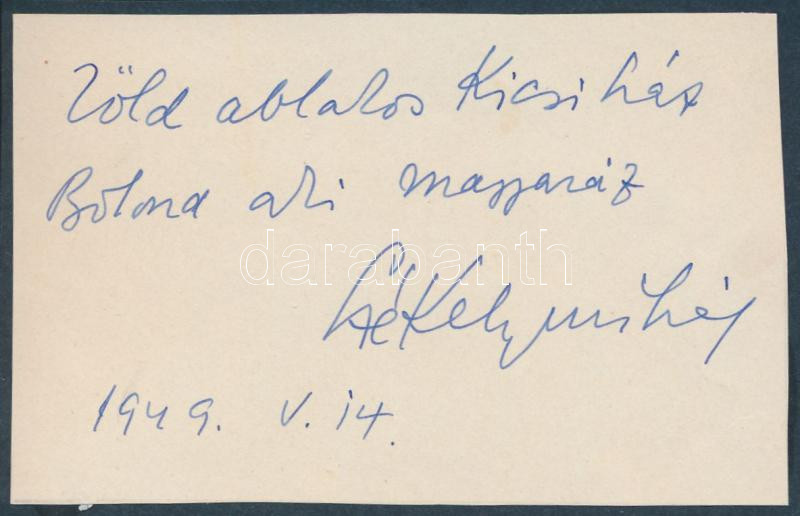 Zöld ablakos Kicsi ház
Bolond aki magyaráz
darabanth
Székely Mihály
1949. V. 14.